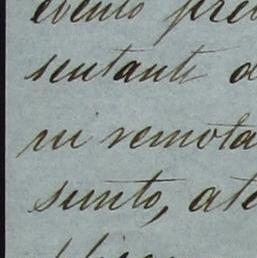 evento pre
sentante d
ni remota
sunto, ate